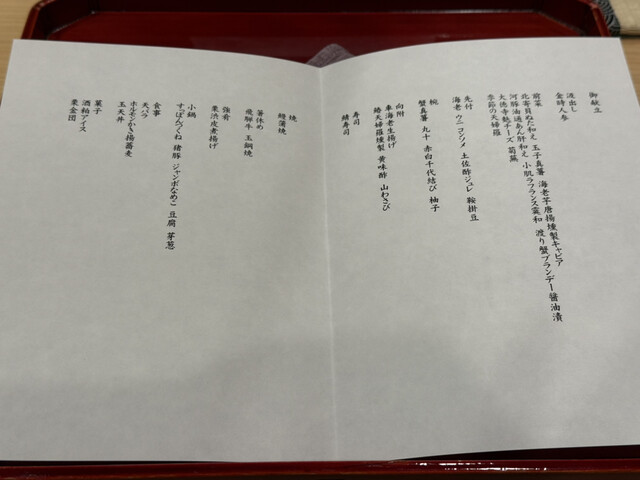 御献立
渡出し
金時人参
前菜
北寄貝ぬた和え 玉子真薯 海老芋唐揚燻製キャビア
河豚油通あん肝和え 小肌ラフランス霙和 渡り蟹ブランデー醤油漬
大徳寺麩チーズ 菊蕪
季節の天婦羅
先付
海老 ウニ コンソメ 土佐酢ジュレ 鞍掛豆
椀
蟹真薯 丸十 赤白千代結び 柚子
向附
車海老生揚げ
鰆天婦羅燻製 黄味酢 山わさび
寿司
鯖寿司
焼
鰻蒲焼
箸休め
飛騨牛 玉鋼焼
強肴
栗渋皮煮揚げ
小鍋
すっぽんつくね 猪豚 ジャンボなめこ 豆腐 芽葱
食事
天バラ
ホルモンかき揚蕎麦
玉天丼
菓子
酒粕アイス
栗金団